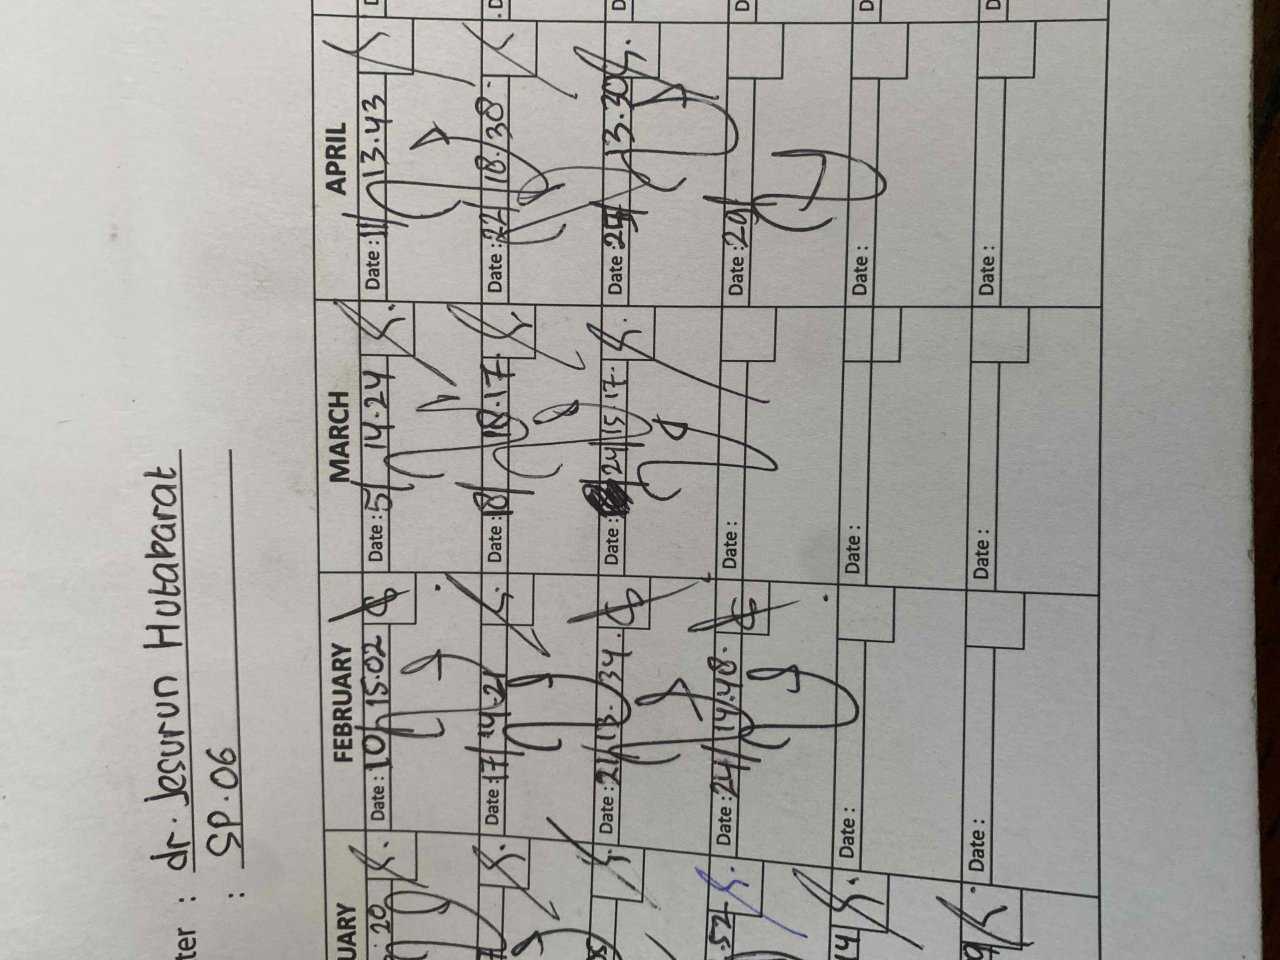 ter : dr. Jesurun Hutabarat
: SP.06
UARY FEBRUARY MARCH APRIL
:20 Date : 10/ 15.02 Date : 5/ 14.24 Date : 11/ 13.43
Date : 17/ 14.21 Date : 18/ 18.17. Date : 22/ 18.38.
Date : 21/ 13.34. Date : 24/ 15.17. Date : 24/ 13.30
.52 Date : 24/ 14.48. Date : Date : 29/
14 Date : Date : Date :
9 Date : Date : Date :